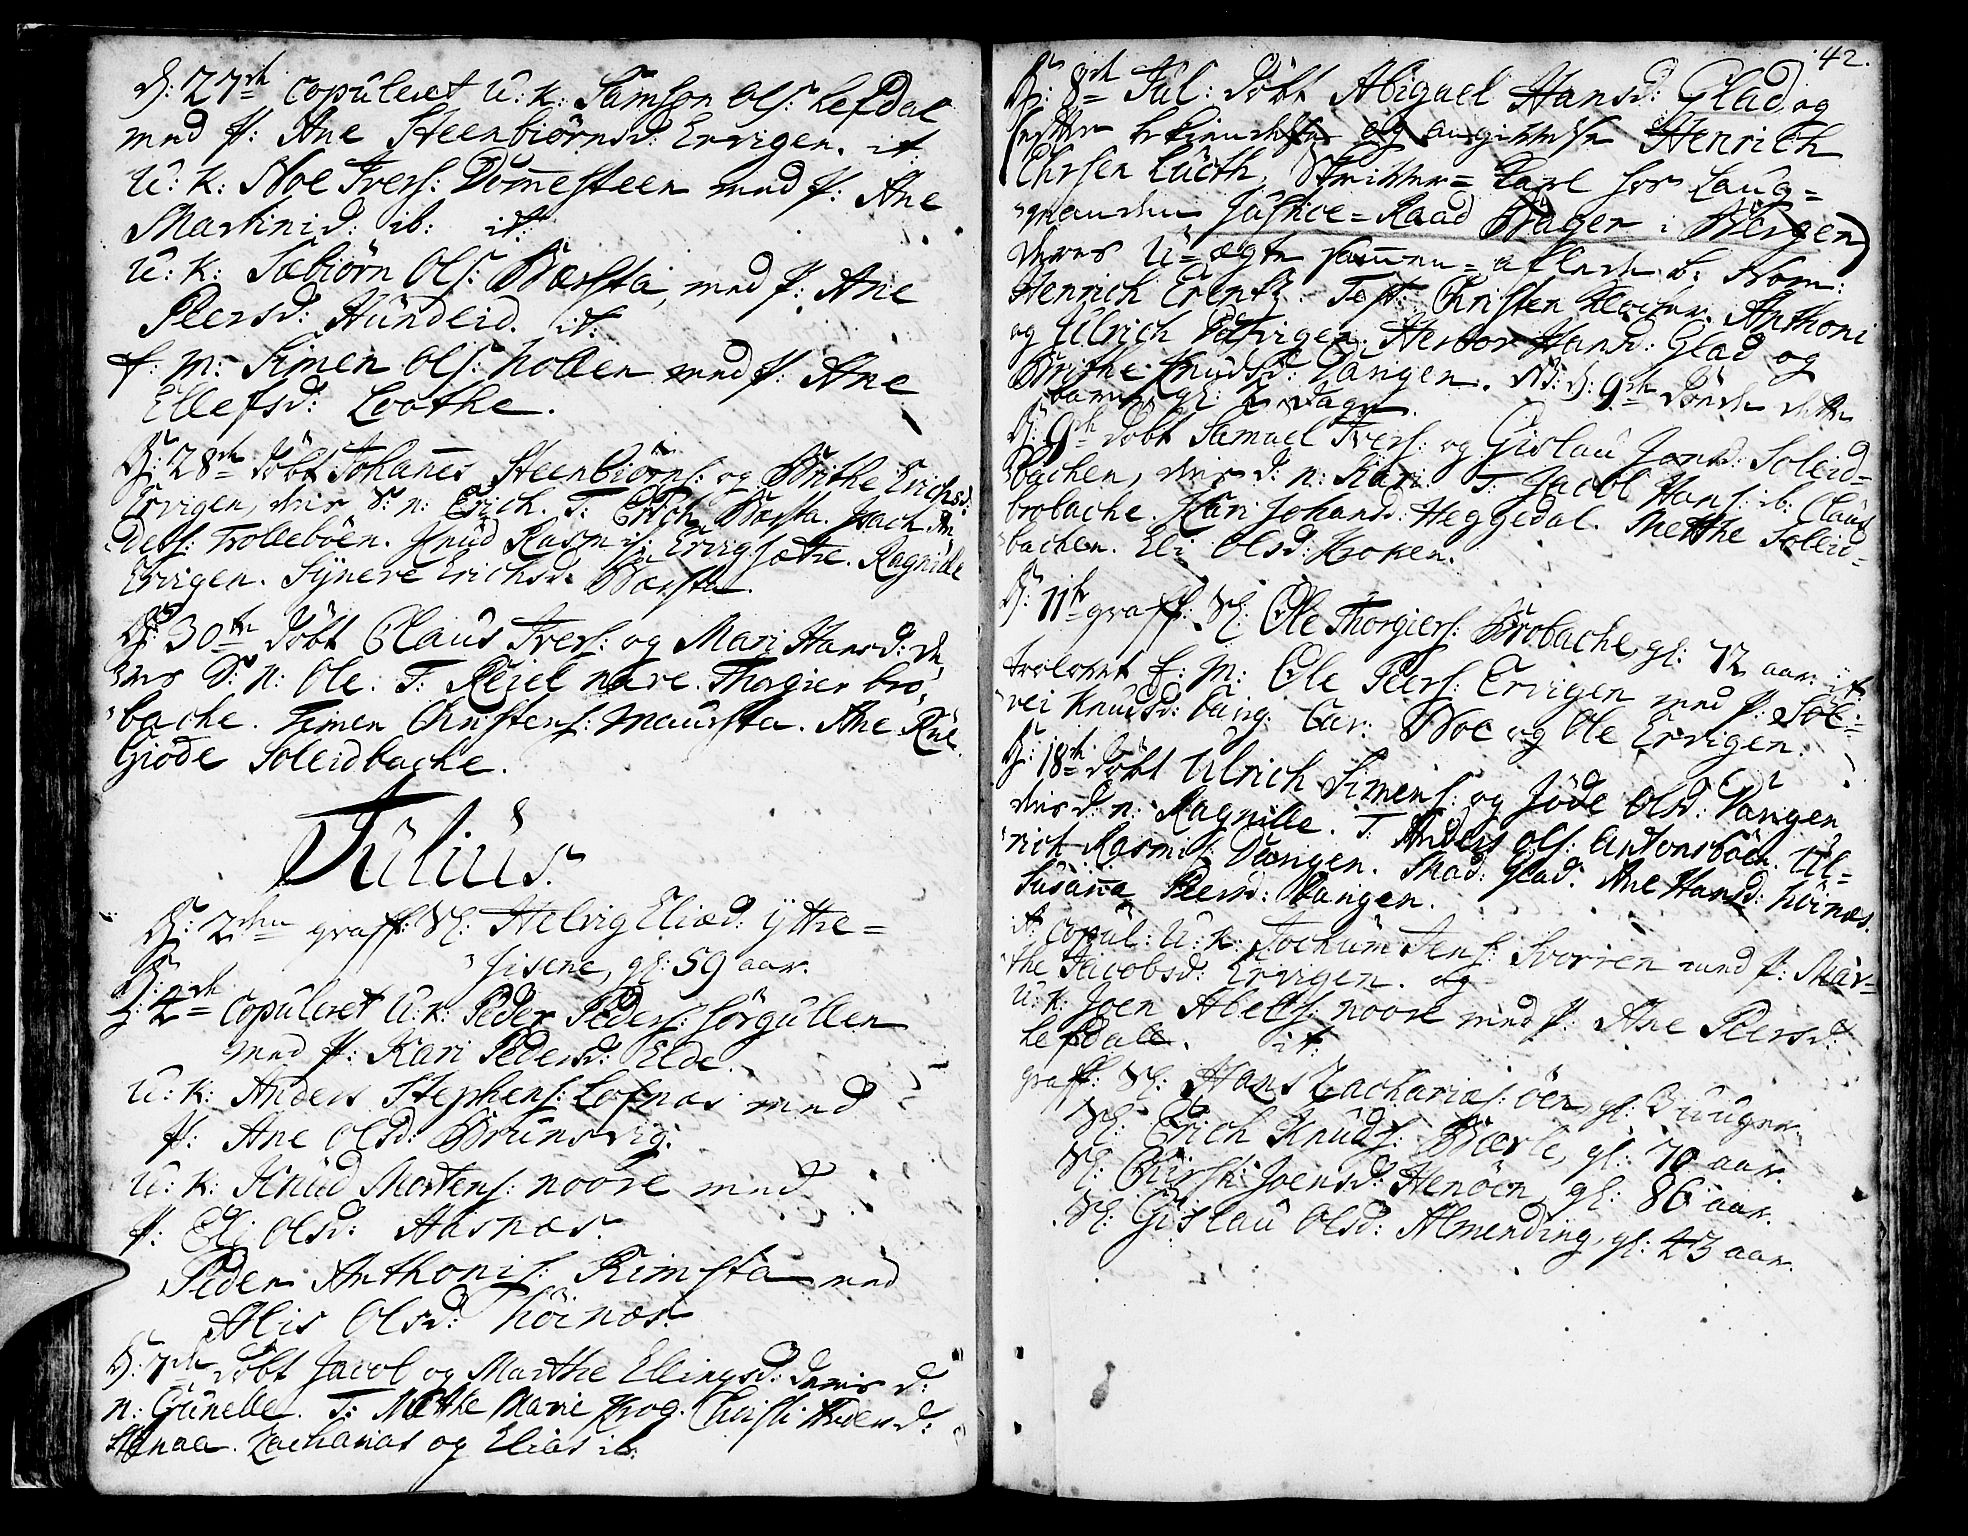 D: 27de copuleret U: K: Samson Ols: Lefdal
med P: Ane Steenbiörnsd: Ervigen. it
U: K: Noe Ivers: Dom̄esteen med P: Ane
Martinid: ib: it:
U: K: Sæbiörn Ols: Bærsta, med P: Ane
Peersd: Hündeid. it:
f: m: Simen Ols: Hollen med P: Ane
Ellefsd: Loothe.
D: 28de döbt Johan̄es Steenbiörns: og Brithe Erichsd:
Ervigen, deris S: n: Erich. T: Erich Bærsta. Isach An
ders: Trolleböen. Knüd Rasmis: Ervigsætre. Ragnilde
Ervigen. Synere Erichsd: Bærsta.
D: 30te döbt Claus Ivers: og Mari Hansd: de
res S: n: Ole. T: Reiel nore. Thorgier bro
bache. Simen Christens: Maursta. Ane Rüe.
Giöde Soleidbache.
Jülius.
D: 2den graff: Sl: Helvig Eliæd: ytre=
hisene, gl: 59 aar.
D: 2de copuleret U: K: Peder Peders: Sörgüllen
med P: Kari Pedersd: Elde.
U: K: Anders Stephens: Lofnæs med
P: Ane Olsd: Brünsvig.
U: K: Knüd Mortens: noore med
P: Eli Olsd: Aasnæs.
Peder Anthonis: Rimsta med
Alis Olsd: Höinæs.
D: 7de döbt Jacob og Marthe Ellingsd: deris d:
n: Gunelle. T: Mette Marie Krog. Christi Andersd:
Stenaa. Zacharias og Elias ib:
42.
D: 8de Jul: döbt Abigael Hansd: Glad og
(efter bekiendelse og angivelse Henrich
Ehrsen Lüeth, Skriver=Karl hos Laug=
manden Justice=Raad Bager i Bergen)
deres U=ægte sam̄en=aflede b: Nom:
Henrich Erentz. Test: Christen Klocker. Anthoni
og Ulrich Totvigen. Herbor Hansd: Glad og
Brithe Knudsd: Vangen. NB: D: 9de döde dette
barn, gl: 2 dage.
D: 9de döbt Samuel Ivers: og Gislau Jonsd: Soleid=
bachen, deris d: n: Kari. T: Jacob Hans: ib: Claus
brobache. Kari Johansd: Heggedal. Mette Soleid=
bachen. Eli Olsd: Kroken.
D: 11te graff: Sl: Ole Thorgiers: Brobache, gl: 72 aar: it:
trolovet f: M: Ole Peers: Ervigen med P: Söl=
vei Knudsd: Vang: Cav: Noe og Ole Ervigen.
D: 18de döbt Ulrich Simens: og Jöde Olsd: Vangen
deris d: n: Ragnille. T. Anders Ols: Antonsböen. Ul=
rich Rasmis: Vangen. Mad: Glad. Ane Hansd: Höinæs.
Susan̄a Peersd: Vangen.
it: copul: U: K: Jochüm Jens: Svorren med P: Mar=
the Jacobsd: Ervigen. og
U: K: Joen Abels: noore med P: Ane Peersd:
Lefdale. it:
graff: Sl: Hans Zacharias: öen, gl: 3 uuger.
Sl: Erich Knuds: Bærle, gl: 70 aar.
Sl: Joensd: Henöen, gl: 86 aar.
Sl: Gislau Olsd: Almending, gl: 43 aar.